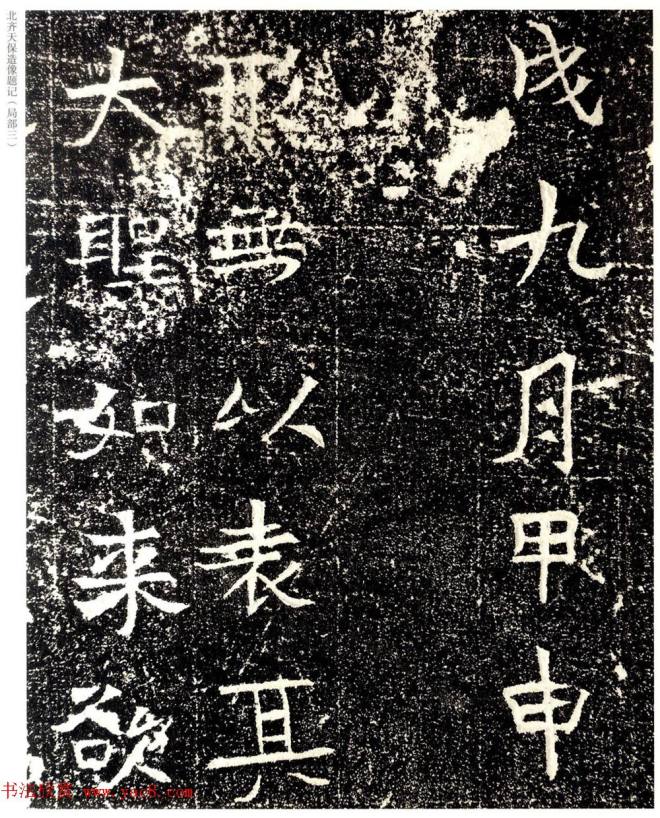 北齐天保造像题记（局部三）
戌九月甲申
形無以表其
大聖如来欲
书法欣赏 www.yac8.com